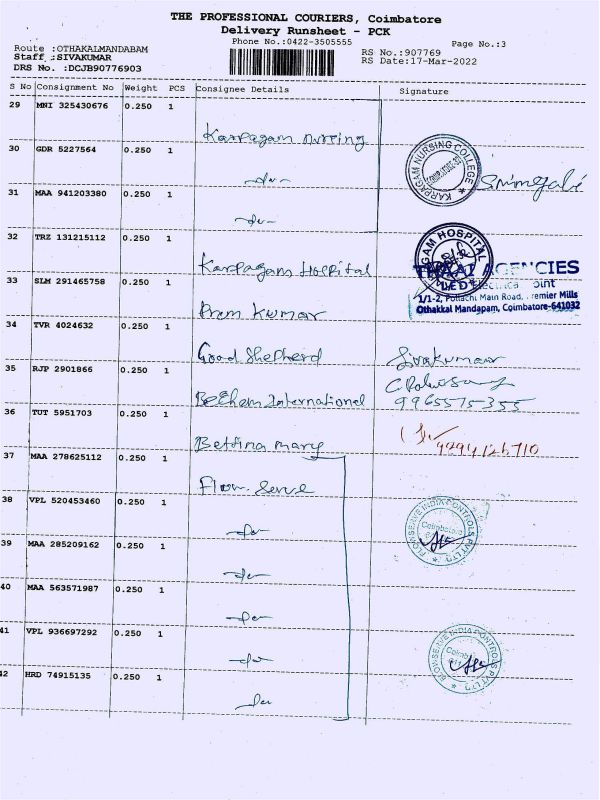 THE PROFESSIONAL COURIERS, Coimbatore
Delivery Runsheet - PCK
Phone No.:0422-3505555
Page No.:3
Route :OTHAKALMANDABAM
RS No.:907769
Staff :SIVAKUMAR
RS Date:17-Mar-2022
DRS No. :DCJB90776903
S No Consignment No Weight PCS Consignee Details Signature
29 MNI 325430676 0.250 1
Karpagam nursing
30 GDR 5227564 0.250 1
KARPAGAM NURSING COLLEGE
-do-
31 MAA 941203380 0.250 1
-do-
32 TRZ 131215112 0.250 1
Karpagam Hospital
HOSPITAL
THAAI AGENCIES
33 SLM 291465758 0.250 1
1/1-2, Pollachi Main Road, Premier Mills
Othakkal Mandapam, Coimbatore-641032
Prem Kumar
34 TVR 4024632 0.250 1
Good Shepherd
Sivakumar
35 RJP 2901866 0.250 1
International
9965575355
36 TUT 5951703 0.250 1
Bettina mary
37 MAA 278625112 0.250 1
Flow Serve
38 VPL 520453460 0.250 1
FLOWSERVE INDIA CONTROLS PVT LTD
Coimbatore
-do-
39 MAA 285209162 0.250 1
-do-
40 MAA 563571987 0.250 1
-do-
41 VPL 936697292 0.250 1
FLOWSERVE INDIA CONTROLS PVT LTD
-do-
42 HRD 74915135 0.250 1
-do-